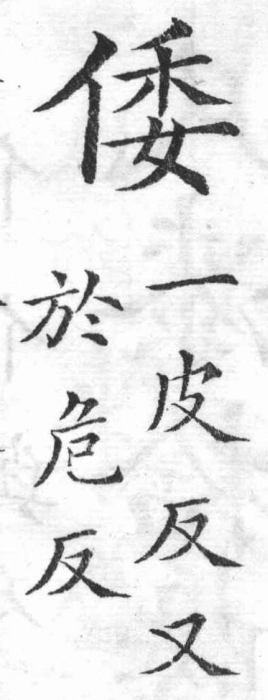 倭
一皮反又
於危反